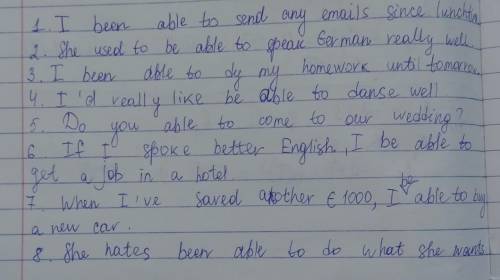 1. I been able to send any emails since lunchtim
2. She used to be able to speak German really well.
3. I been able to dy my homework until tomorrow
4. I'd really like be able to danse well
5. Do you able to come to our wedding?
6 If I spoke better English, I be able to
get a job in a hotel
7. When I've saved another €1000, I be able to buy
a new car.
8. She hates been able to do what she wants